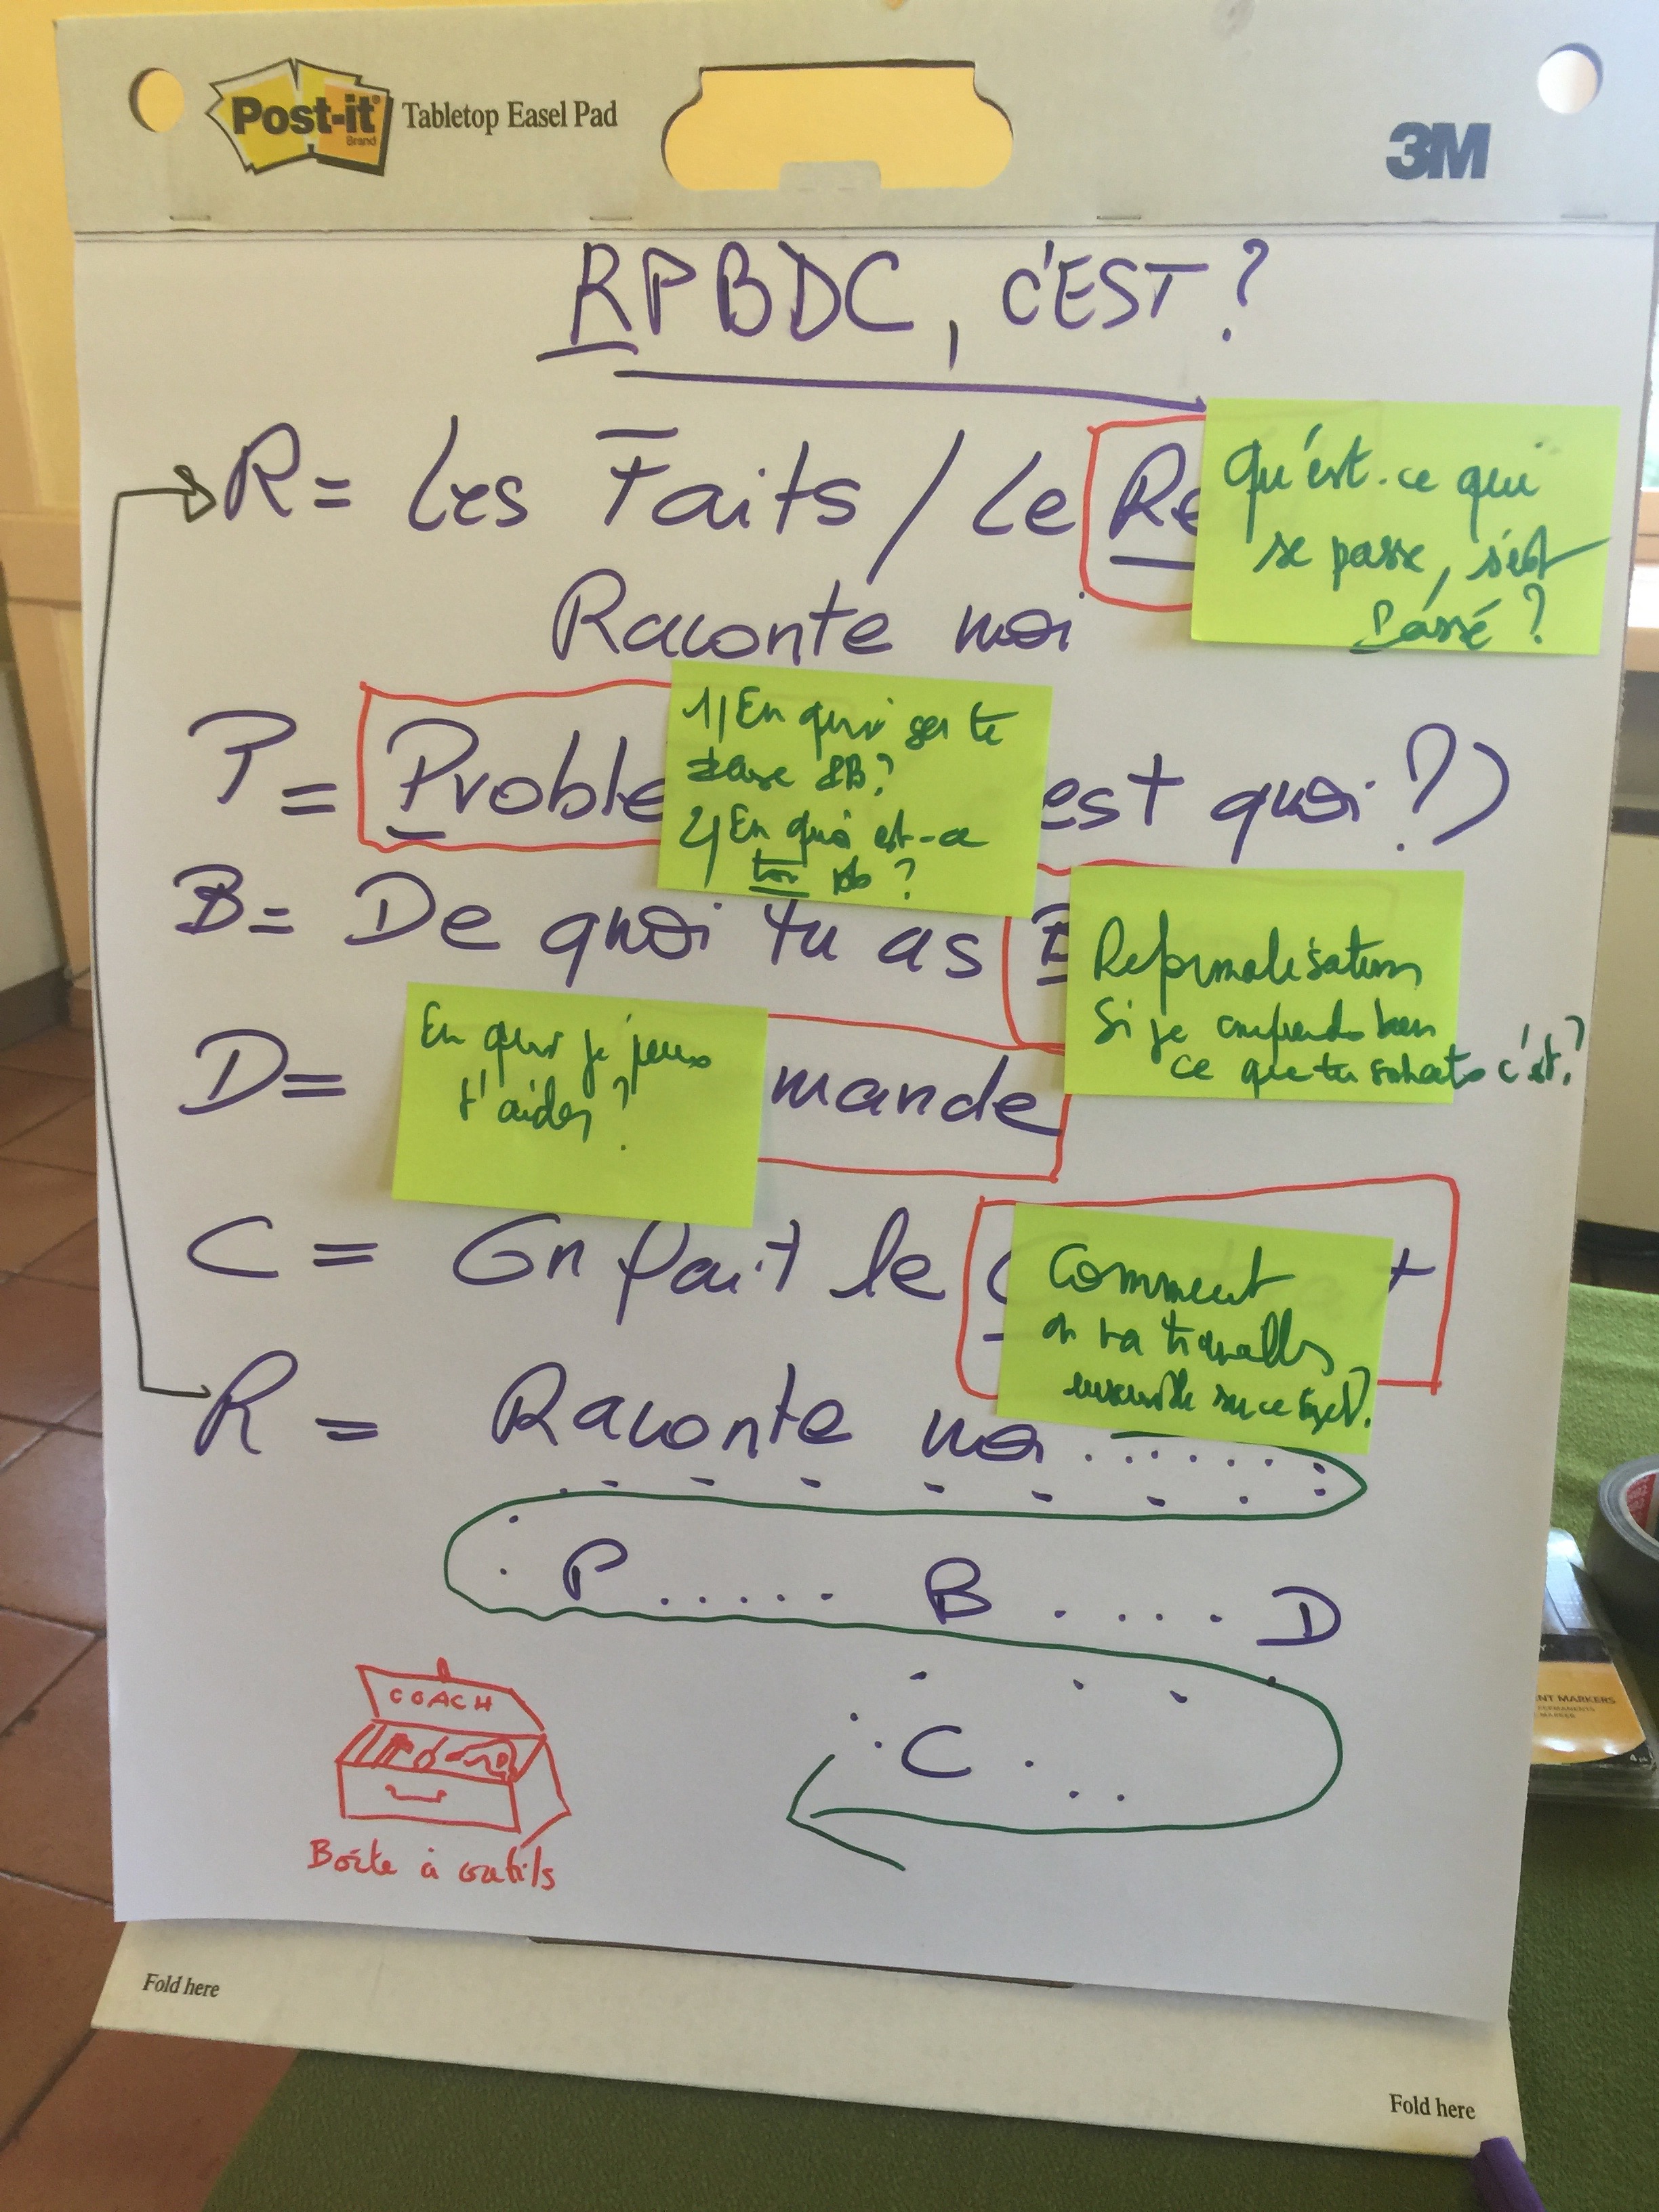 Post-it
Brand
Tabletop Easel Pad
3M
RPBDC, C'EST ?
R = Les Faits / Le Ré
Qu'est-ce qui
se passe, s'est
Passé ?
Raconte moi
P = Problè est quoi ?)
1) En quoi ça te
pose PB ?
2) En quoi est-ce
ton pb ?
B = De quoi tu as B
Reformalisation
Si je comprends bien
ce que tu souhaites c'est ?
D = mande
En quoi je peux
t'aider ?
C = On fait le C t
Comment
on va travailler
ensemble sur ce sujet ?
R = Raconte moi . . . . . . .
P . . . . . . B . . . . D
C . . . .
COACH
Boîte à outils
NT MARKERS
Fold here
Fold here